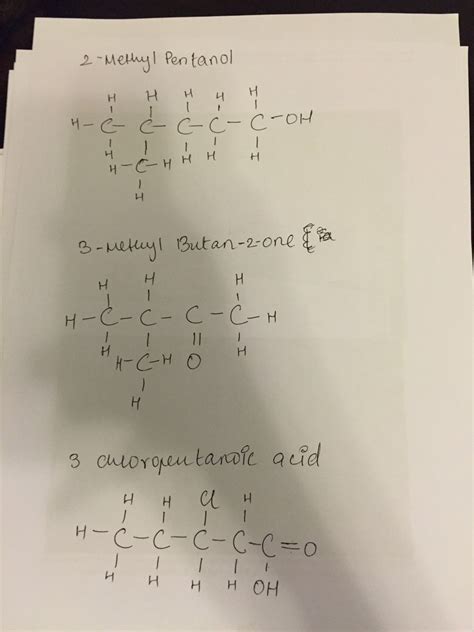 2-Methyl Pentanol
H H H H H
H-C-C-C-C-C-OH
H H H H
H-C-H
H
3-Methyl Butan-2-one
H H H
H-C-C-C-C-H
H O H
H-C-H
H
3 chloropentanoic acid
H H Cl H
H-C-C-C-C-C=O
H H H H OH